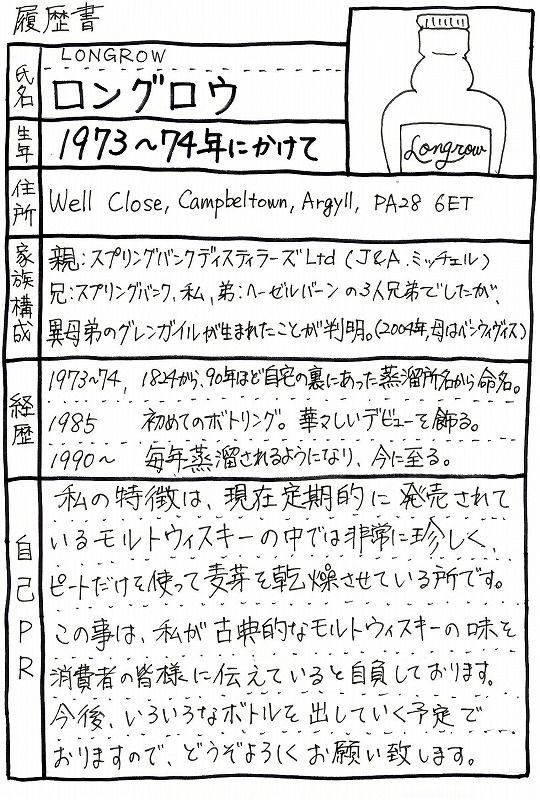 履歴書
氏名
LONGROW
ロングロウ
Longrow
生年
1973～74年にかけて
住所
Well Close, Campbeltown, Argyll, PA28 6ET
家族構成
親：スプリングバンクディスティラーズLtd (J&A.ミッチェル)
兄：スプリングバンク、私、弟：ヘーゼルバーンの3人兄弟でしたが、
異母弟のグレンガイルが生まれたことが判明。(2004年,母はベンウィヴィス)
経歴
1973~74, 1824から、90年ほど自宅の裏にあった蒸溜所名から命名。
1985 初めてのボトリング。華々しいデビューを飾る。
1990～ 毎年蒸溜されるようになり、今に至る。
自己PR
私の特徴は、現在定期的に発売されて
いるモルトウィスキーの中では非常に珍しく、
ピートだけを使って麦芽を乾燥させている所です。
この事は、私が古典的なモルトウィスキーの味を
消費者の皆様に伝えていると自負しております。
今後、いろいろなボトルを出していく予定で
おりますので、どうぞよろしくお願い致します。